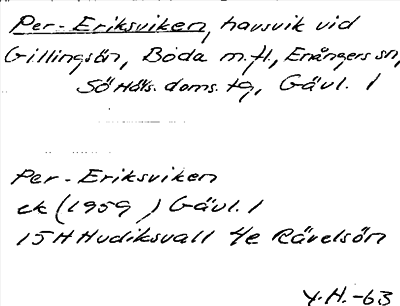 Per-Eriksviken, havsvik vid
Gillingsön, Böda m.fl., Enångers sn,
Sö Häls. doms. tg, Gävl. l
Per-Eriksviken
ek (1959) Gävl. l
15H Hudiksvall 4e Rävelsön
Y.H.-63